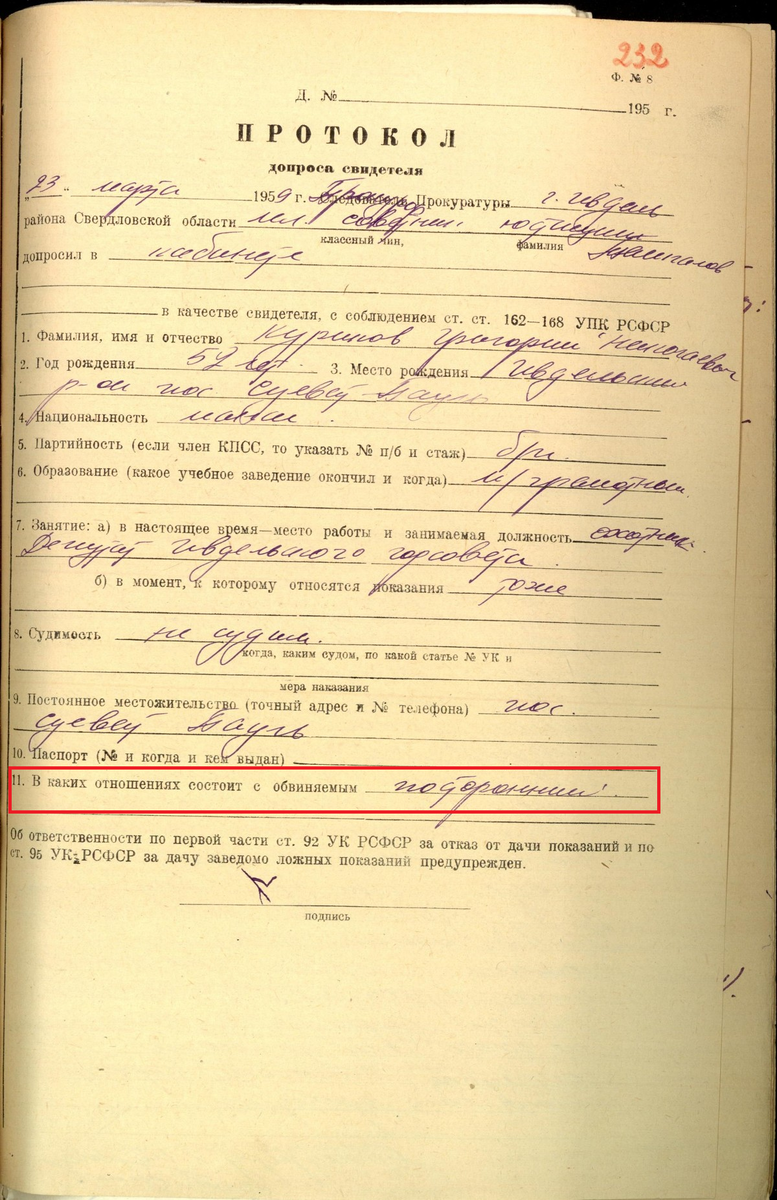 232
Ф. № 8
Д. № 195 г.
ПРОТОКОЛ
допроса свидетеля
„23„ марта 1959 г. Прокурор Следователь Прокуратуры г. Ивдель
района Свердловской области мл. советник юстиции
классный чин, фамилия
допросил в кабинете Темпалов
в качестве свидетеля, с соблюдением ст. ст. 162—168 УПК РСФСР
1. Фамилия, имя и отчество Куриков Григорий
2. Год рождения 52 лет. 3. Место рождения Ивдельский
р-он пос. Суеват Пауль
4. Национальность манси.
5. Партийность (если член КПСС, то указать № п/б и стаж) б/п.
6. Образование (какое учебное заведение окончил и когда) н/грамотный.
7. Занятие: а) в настоящее время—место работы и занимаемая должность охотник.
Депутат Ивдельского горсовета.
б) в момент, к которому относятся показания тоже
8. Судимость не судим.
когда, каким судом, по какой статье № УК и
мера наказания
9. Постоянное местожительство (точный адрес и № телефона) пос.
Суеват Пауль
10. Паспорт (№ и когда и кем выдан)
11. В каких отношениях состоит с обвиняемым посторонний.
Об ответственности по первой части ст. 92 УК РСФСР за отказ от дачи показаний и по
ст. 95 УК РСФСР за дачу заведомо ложных показаний предупрежден.
подпись